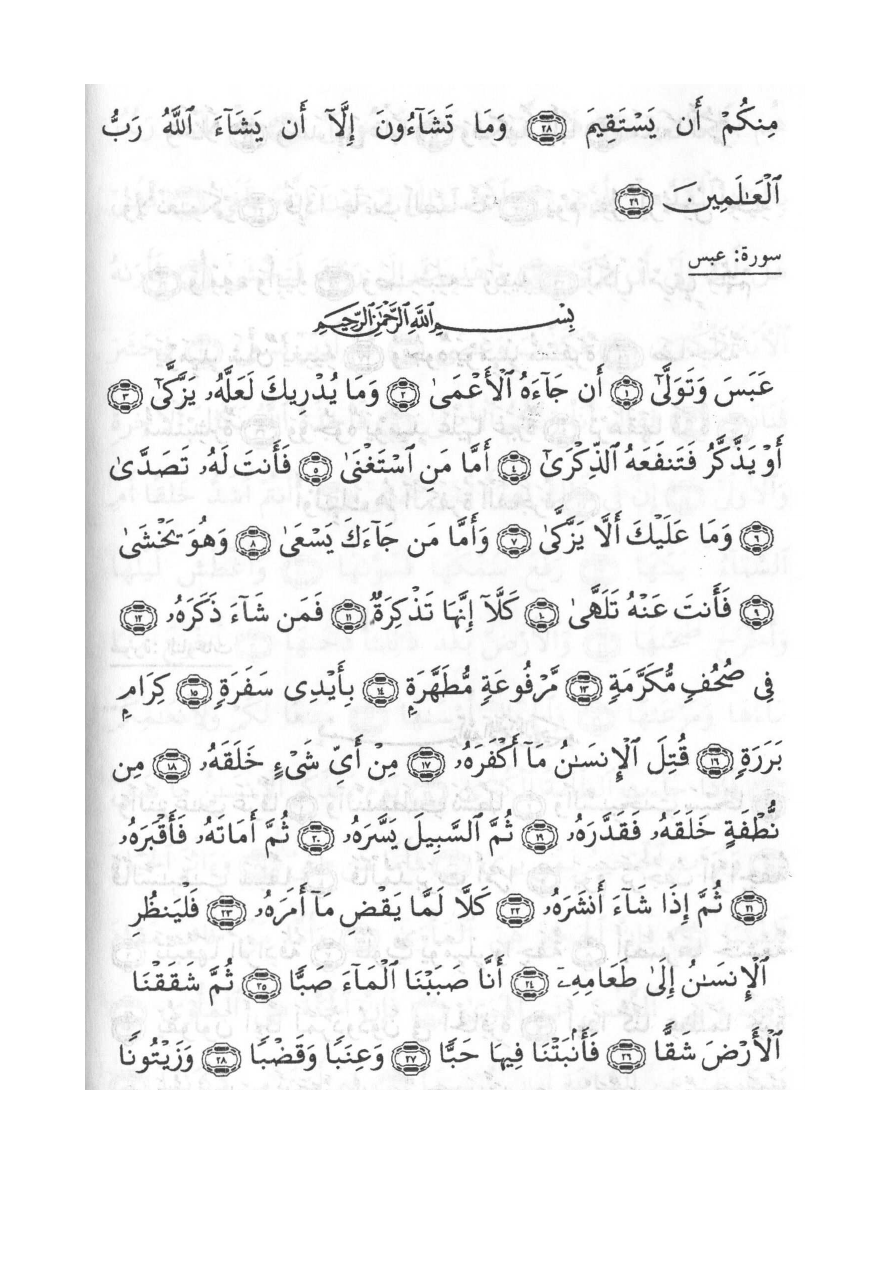 مِنكُمْ أَن يَسْتَقِيمَ ﴿٢٨﴾ وَمَا تَشَآءُونَ إِلَّآ أَن يَشَآءَ ٱللَّهُ رَبُّ
ٱلْعَـٰلَمِينَ ﴿٢٩﴾
سورة: عبس
بِسْمِ ٱللَّهِ ٱلرَّحْمَـٰنِ ٱلرَّحِيمِ
عَبَسَ وَتَوَلَّىٰٓ ﴿١﴾ أَن جَآءَهُ ٱلْأَعْمَىٰ ﴿٢﴾ وَمَا يُدْرِيكَ لَعَلَّهُۥ يَزَّكَّىٰٓ ﴿٣﴾
أَوْ يَذَّكَّرُ فَتَنفَعَهُ ٱلذِّكْرَىٰٓ ﴿٤﴾ أَمَّا مَنِ ٱسْتَغْنَىٰ ﴿٥﴾ فَأَنتَ لَهُۥ تَصَدَّىٰ
﴿٦﴾ وَمَا عَلَيْكَ أَلَّا يَزَّكَّىٰ ﴿٧﴾ وَأَمَّا مَن جَآءَكَ يَسْعَىٰ ﴿٨﴾ وَهُوَ يَخْشَىٰ
﴿٩﴾ فَأَنتَ عَنْهُ تَلَهَّىٰ ﴿١٠﴾ كَلَّآ إِنَّهَا تَذْكِرَةٌ ﴿١١﴾ فَمَن شَآءَ ذَكَرَهُۥ ﴿١٢﴾
فِى صُحُفٍ مُّكَرَّمَةٍ ﴿١٣﴾ مَّرْفُوعَةٍ مُّطَهَّرَةٍۭ ﴿١٤﴾ بِأَيْدِى سَفَرَةٍ ﴿١٥﴾ كِرَامٍۭ
بَرَرَةٍ ﴿١٦﴾ قُتِلَ ٱلْإِنسَـٰنُ مَآ أَكْفَرَهُۥ ﴿١٧﴾ مِنْ أَىِّ شَىْءٍ خَلَقَهُۥ ﴿١٨﴾ مِن
نُّطْفَةٍ خَلَقَهُۥ فَقَدَّرَهُۥ ﴿١٩﴾ ثُمَّ ٱلسَّبِيلَ يَسَّرَهُۥ ﴿٢٠﴾ ثُمَّ أَمَاتَهُۥ فَأَقْبَرَهُۥ
﴿٢١﴾ ثُمَّ إِذَا شَآءَ أَنشَرَهُۥ ﴿٢٢﴾ كَلَّا لَمَّا يَقْضِ مَآ أَمَرَهُۥ ﴿٢٣﴾ فَلْيَنظُرِ
ٱلْإِنسَـٰنُ إِلَىٰ طَعَامِهِۦٓ ﴿٢٤﴾ أَنَّا صَبَبْنَا ٱلْمَآءَ صَبًّا ﴿٢٥﴾ ثُمَّ شَقَقْنَا
ٱلْأَرْضَ شَقًّا ﴿٢٦﴾ فَأَنۢبَتْنَا فِيهَا حَبًّا ﴿٢٧﴾ وَعِنَبًا وَقَضْبًا ﴿٢٨﴾ وَزَيْتُونًا